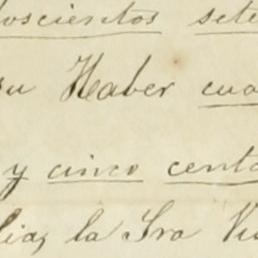 doscientos sete
su Haber cua
y cinco centa
lia, la Sra Vi